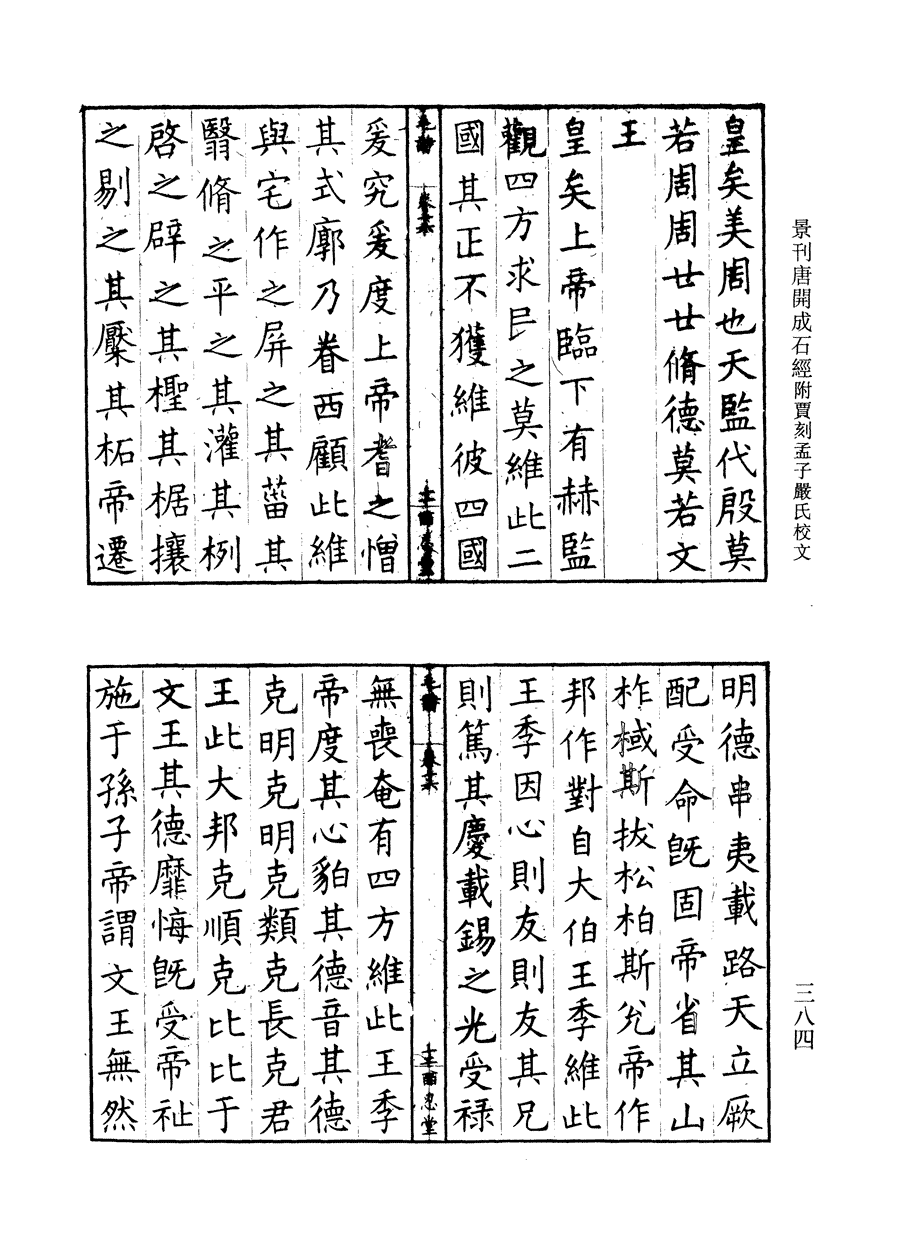 景刊唐開成石經附賈刻孟子嚴氏校文
皇矣美周也天監代殷莫
若周周廿廿脩德莫若文
王
皇矣上帝臨下有赫監
觀四方求民之莫維此二
國其正不獲維彼四國
毛詩 卷十六
爰究爰度上帝耆之憎
其式廓乃眷西顧此維
與宅作之屏之其菑其
翳脩之平之其灌其栵
啓之辟之其檉其椐攘
之剔之其檿其柘帝遷
明德串夷載路天立厥
配受命旣固帝省其山
柞棫斯拔松柏斯兊帝作
邦作對自大伯王季維此
王季因心則友則友其兄
則篤其慶載錫之光受祿
毛詩 卷十六 酉忍堂
無喪奄有四方維此王季
帝度其心貊其德音其德
克明克明克類克長克君
王此大邦克順克比比于
文王其德靡悔旣受帝祉
施于孫子帝謂文王無然
三八四